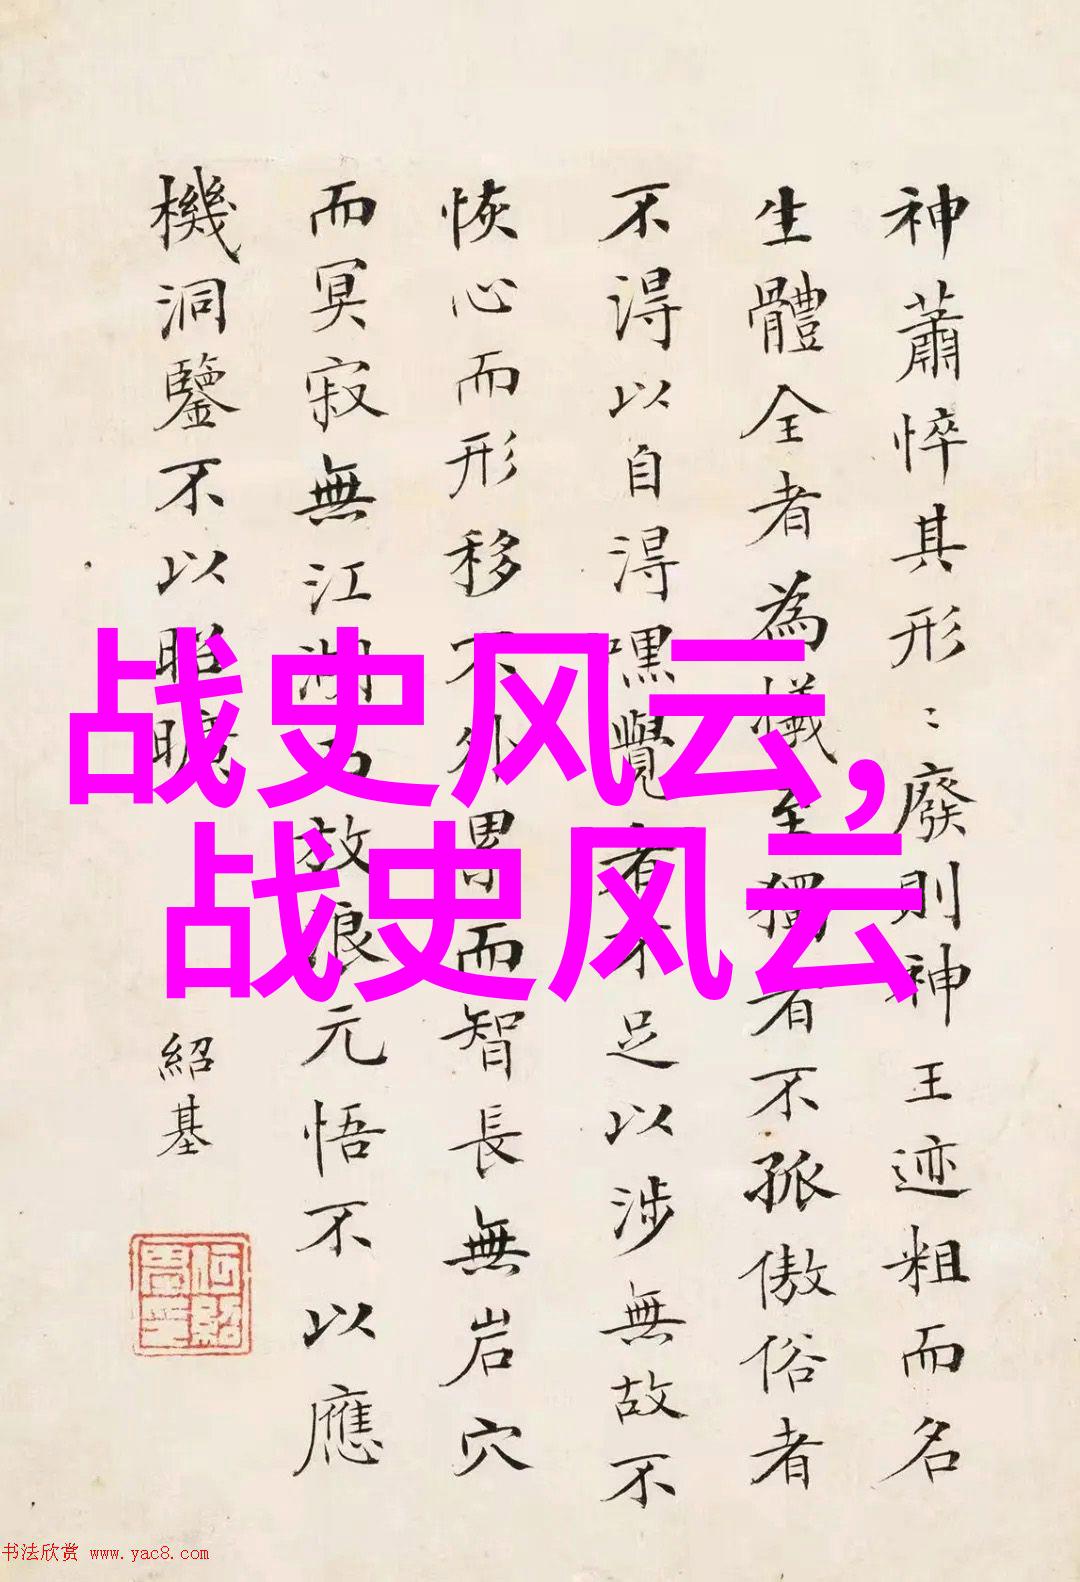 神蕭悴其形〻廢則神王迹粗而名
生體全者為犧至獨者不孤傲俗者
不得以自得嘿覺者不足以涉無故不
恢心而形移不外累而智長無岩穴
而冥寂無江湖而放浪元悟不以應
機洞鑒不以昭曠
紹基
战史风云,
战史风云
书法欣赏 www.yac8.com